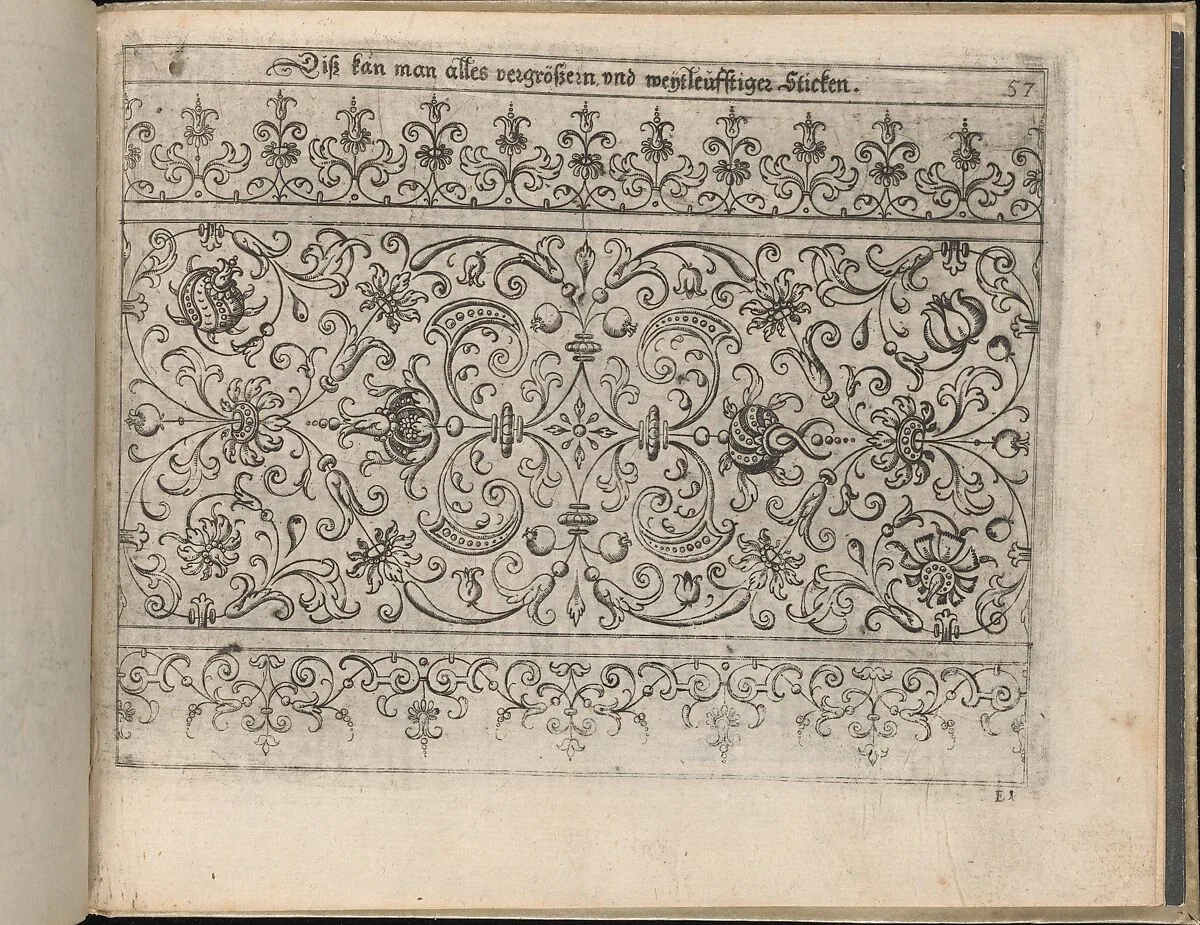 Diß kan man alles vergrößern, vnd weÿtleüfftiger Sticken.
57
E 1